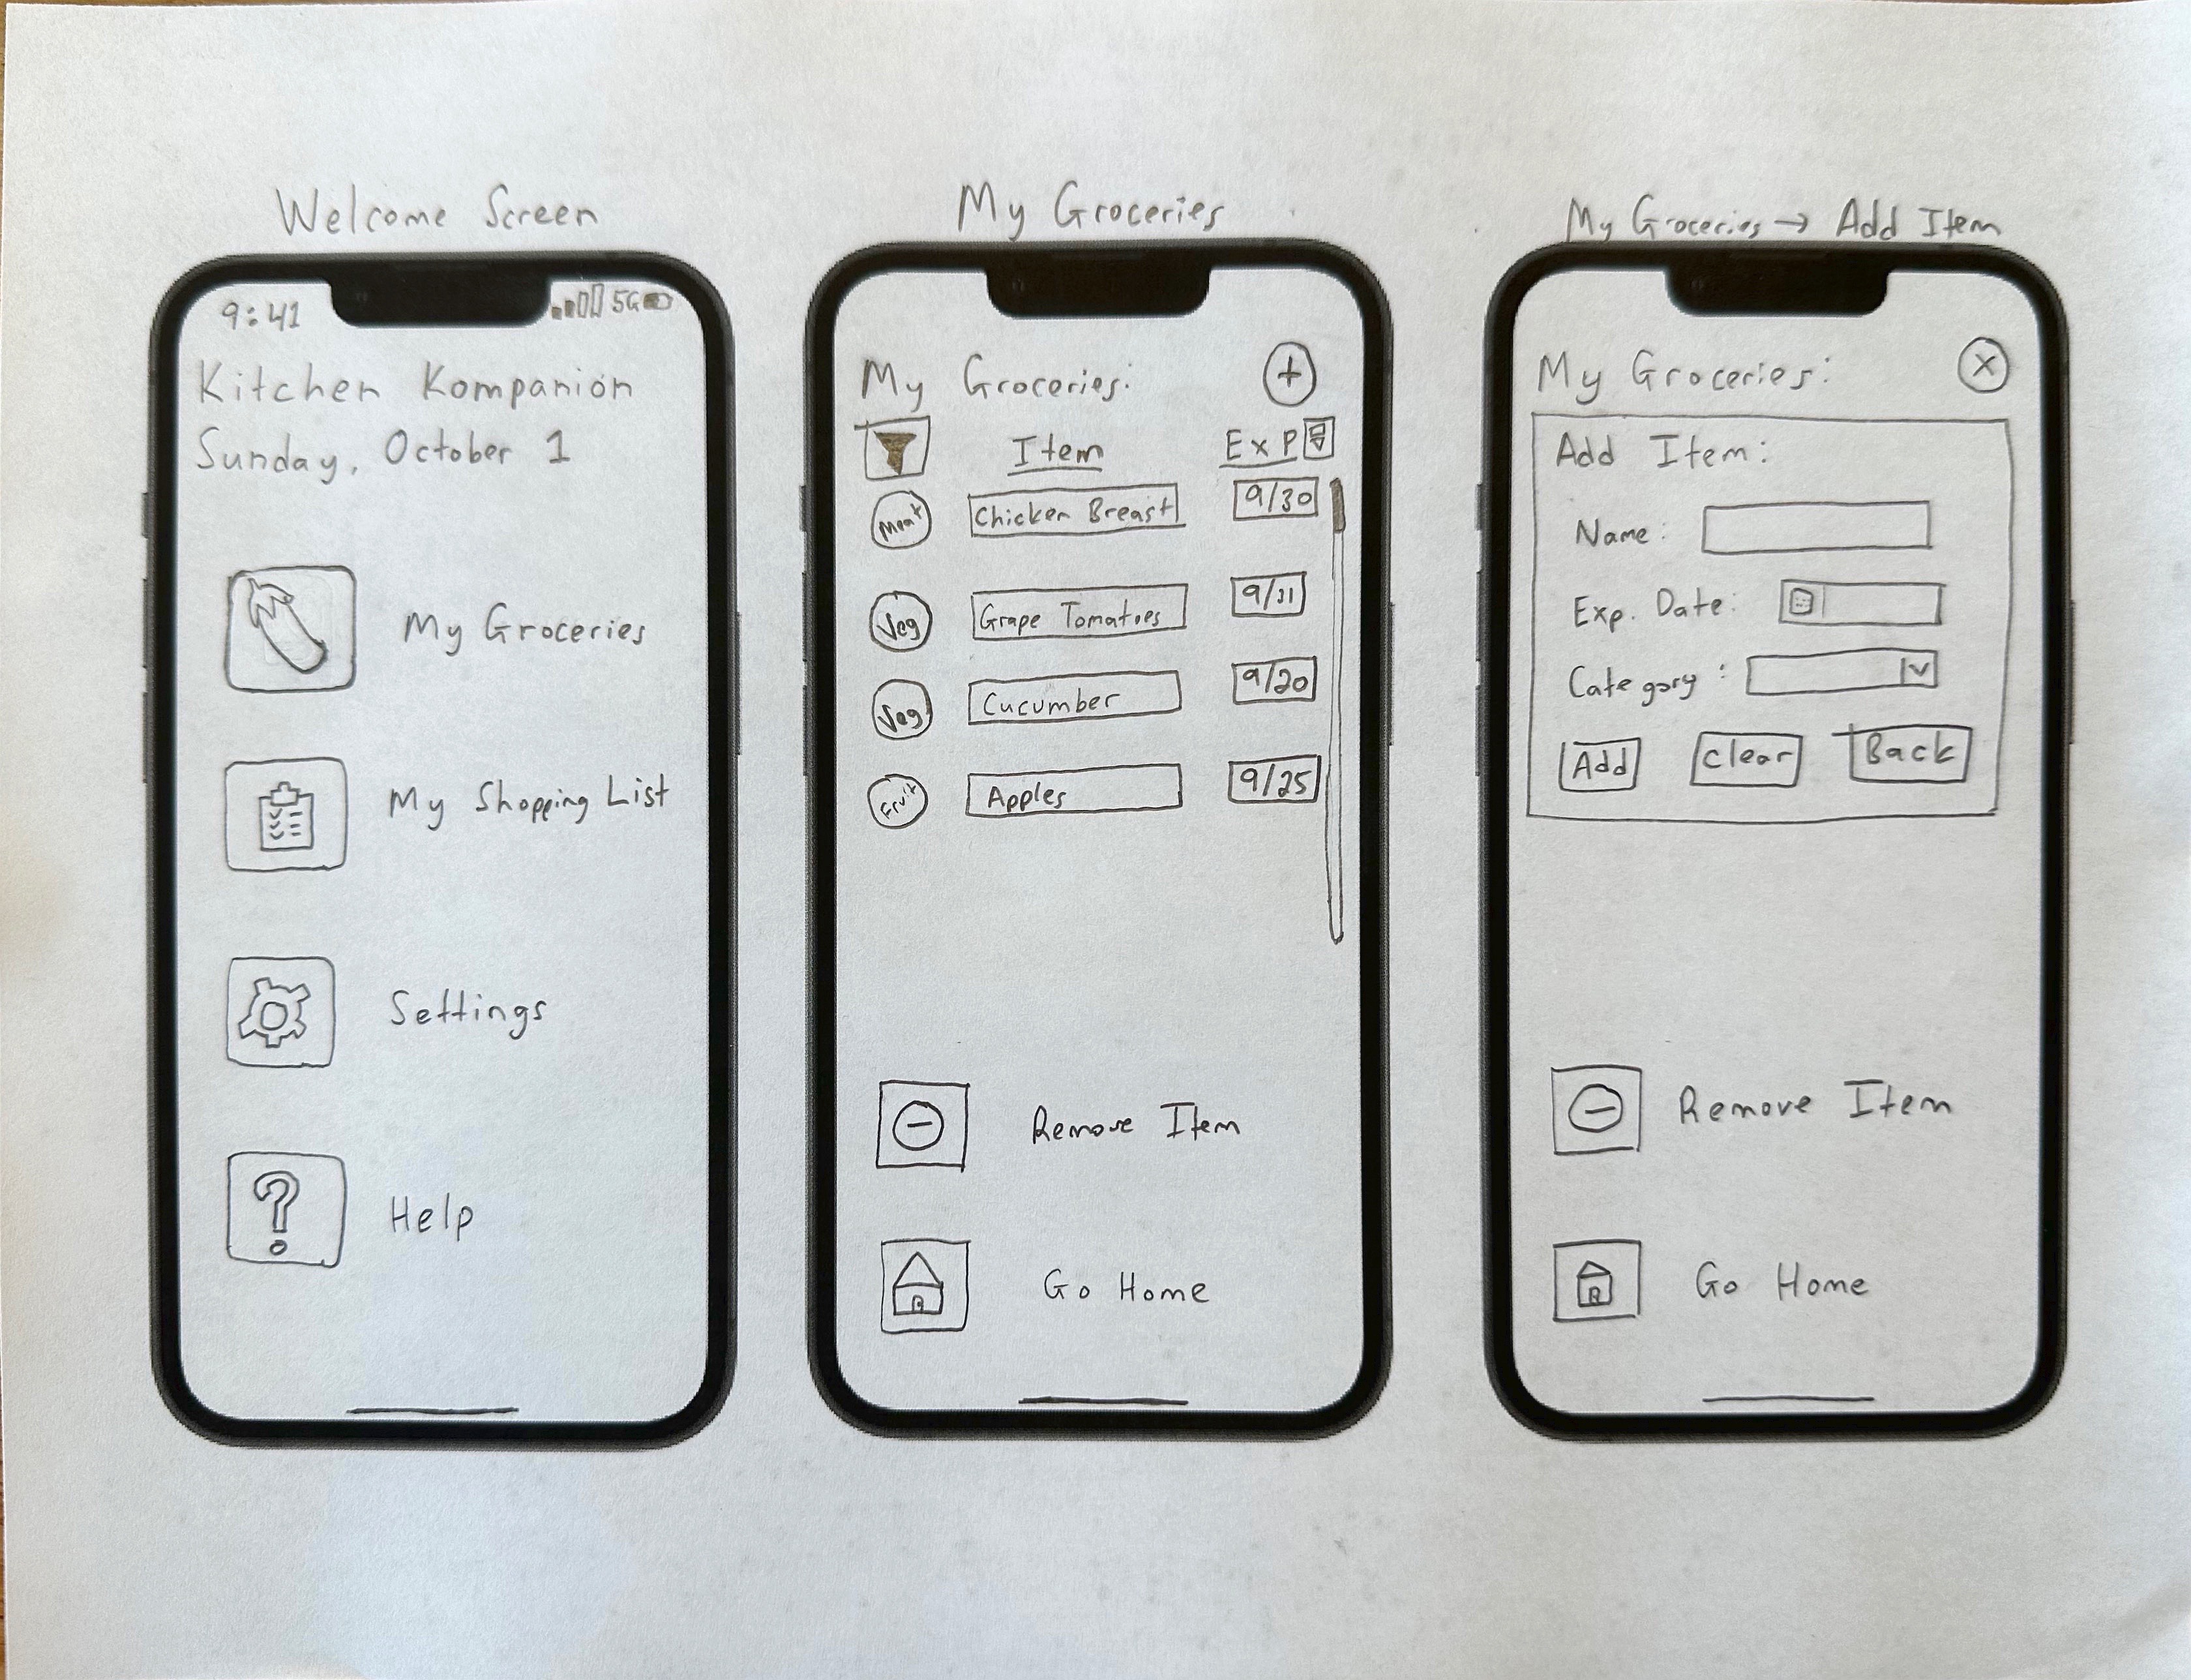 Welcome Screen
9:41 5G
Kitchen Kompanion
Sunday, October 1
My Groceries
My Shopping List
Settings
Help
My Groceries
My Groceries:
Item Exp
Meat Chicken Breast 9/30
Veg Grape Tomatoes 9/31
Veg Cucumber 9/20
Fruit Apples 9/25
Remove Item
Go Home
My Groceries → Add Item
My Groceries: X
Add Item:
Name:
Exp. Date:
Category:
Add Clear Back
Remove Item
Go Home